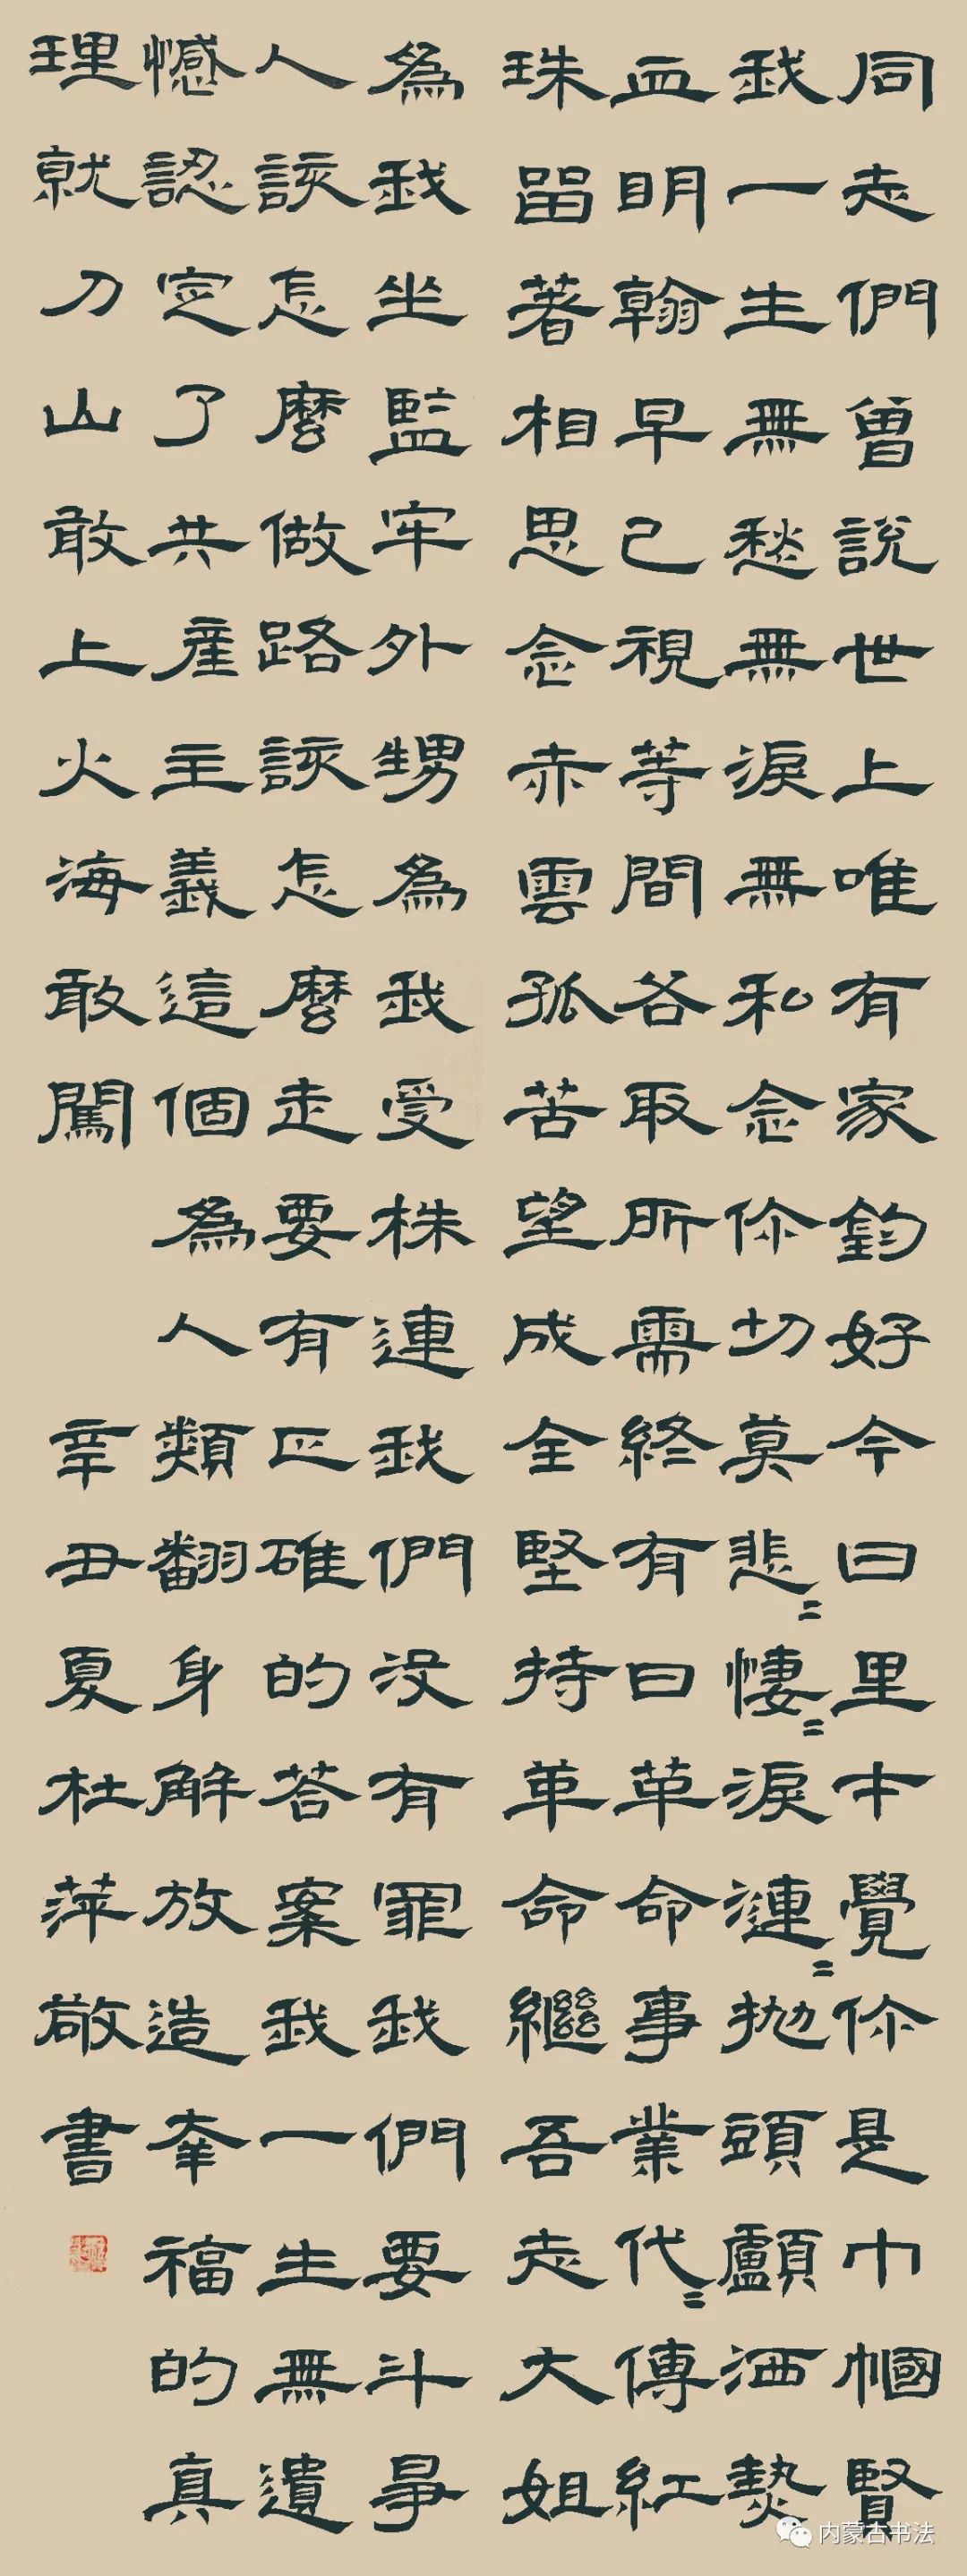 同志們曾說世上唯有家鈞好今日里才覺你是巾幗賢
我一生無愁無淚無私念你切莫悲=悽=淚漣=拋頭顱洒熱
血明翰早已視等間各取所需終有日革命事業代=傳紅
珠留著相思念赤雲孤苦望成全堅持革命繼吾志大姐
為我坐監牢外甥為我受株連我們沒有罪我們要斗爭
人該怎麼做路該怎麼走要有正確的答案我一生無遺
憾認定了共產主義這個為人類翻身解放造幸福的真
理就刀山敢上火海敢闖
辛丑夏杜萍敬書
内蒙古书法